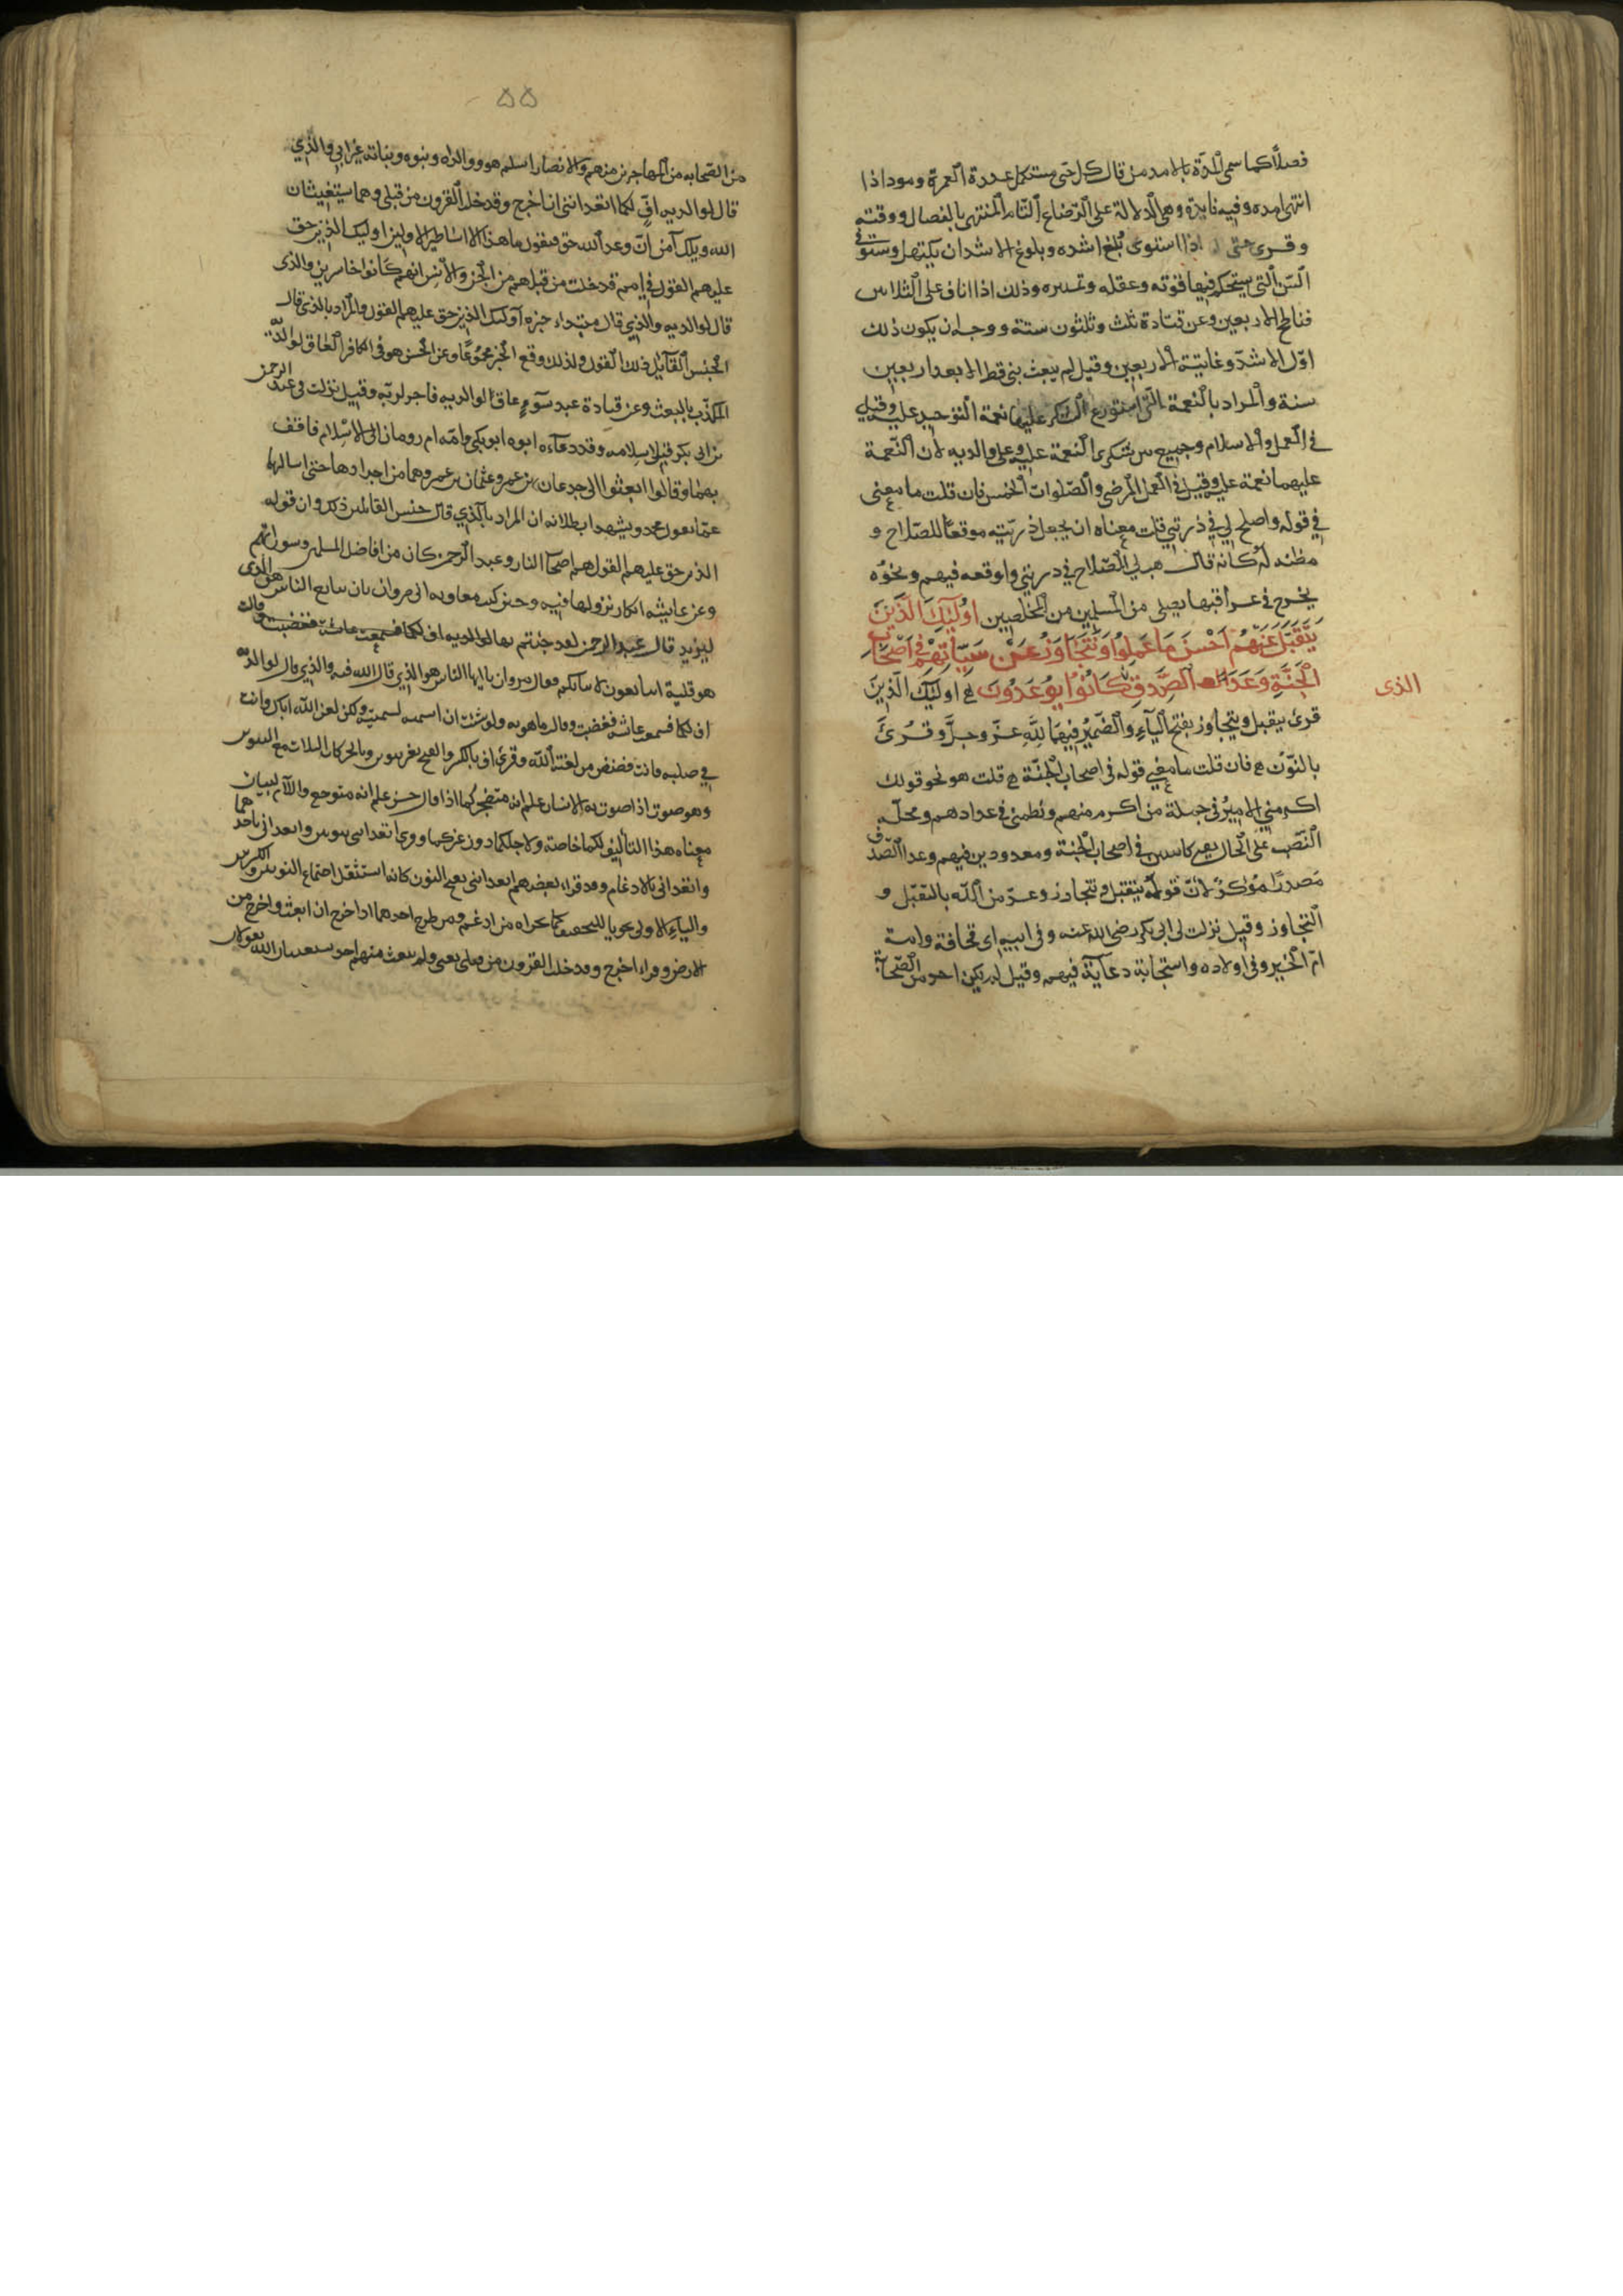 فصلاً كما سمي المدة بالامد من قال كل حي مستكمل عدة العمر ومود اذا
انتهى امده وفيه فايدة وهي الدلالة على الرضاع التام المنتهي بالفصال ووقته
وقرى حتى اذا استوى وبلغ اشده وبلوغ الاشد ان يكتهل ويستوفي
السن التي يستحكم فيها قوته وعقله وتمييزه وذلك اذا اناف على الثلاثين
فناطح الاربعين وعن قتادة ثلث وثلثون سنة ووجهه ان يكون ذلك
اول الاشد وغايته الاربعين وقيل لم يبعث نبي قط الا بعد اربعين
سنة والمراد بالنعمة التي استوزع الشكر عليها نعمة التوحيد عليه وقيل
في العمل والاسلام وجميع بين شكري النعمة عليه وعلى والديه لان النعمة
عليهما نعمة عليه وقيل في العمل المرضي والصلوات الخمس فان قلت ما معنى
في قوله واصلح لي في ذريتي قلت معناه ان يجعل ذريته موقعاً للصلاح و
مظنه له كانه قال هب لي الصلاح في ذريتي واوقعه فيهم ونحوه
يخرج في عراقيبها نصلي من المسلمين من المخلصين اُولٰئِكَ الَّذِينَ
يُتَقَبَّلُ عَنْهُمْ اَحْسَنَ مَا عَمِلُوا وَنَتَجَاوَزُ عَنْ سَيِّآتِهِمْ فِي اَصْحَابِ
الْجَنَّةِ وَعْدَ الصِّدْقِ كَانُوا يُوعَدُونَ ع اولئِكَ الَّذِينَ
الذى
قرئ يتقبل ويتجاوز بفتح الياءِ والضمير فيهما لِلّٰهِ عز وجل وقرئ
بالنون ع فان قلت ما معنى قوله في اصحاب الجنة ع قلت هو نحو قولك
اكرمني الامير في جملة من اكرم منهم ونظمني في عدادهم ومحله
النصب على الحال بمعنى كاينين في اصحاب الجنة ومعدودين فيهم وعد الصدق
مصدر مؤكد لان قوله يتقبل ونتجاوز وعد من الله بالتقبل و
التجاوز وقيل نزلت في ابي بكر رضي الله عنه وفي ابيه ابي قحافة وامه
ام الخير وفي اولاده واستجابة دعائه فيهم وقيل لم يكن احد من الصحابة
٥٥
من الصحابه من المهاجرين منهم والانصار اسلم هو ووالداه وبنوه وبناته غير ابي والذي
قال لوالديه اف لكما اتعدانني ان اخرج وقد خلت القرون من قبلي وهما يستغيثان
الله ويلك آمن ان وعد الله حق فيقول ما هذا الا اساطير الاولين اوليك الذين حق
عليهم القول في امم قد خلت من قبلهم من الجن والانس انهم كانوا خاسرين والذي
قال لوالديه والذي قال مبتداء خبره اولئك الذين حق عليهم القول والمراد بالذي قال
الجنس القايل ذلك القول ولذلك وقع الخبر مجموعًا وعن الحسن هو في الكافر العاق لوالديه
المكذب بالبعث وعن قتادة عبد سوء عاق لوالديه فاجر لربه وقيل نزلت في عبد الرحمن
بن ابي بكر قبل اسلامه وقد دعاه ابوه ابو بكر وامه ام رومان الى الاسلام فافف
بهما وقالوا ابعثوا الى جدعان بن عمرو وعثمان بن عمرو وهما من اجداده حتى اسالهما
عما يقول محمد ويشهد ابطلانه ان المراد بالذي قال جنس القائلين ذلك وان قوله
الذين حق عليهم القول هم اصحاب النار وعبد الرحمن كان من افاضل المسلمين وسرواتهم
وعن عايشه انكار نزولها فيه وحين كتب معاويه الى مروان بان يبايع الناس
ليزيد قال عبد الرحمن لقد جئتم بها
هرقلية اتبايعون لابنائكم فقال مروان يا ايها الناس هو الذي قال الله فيه والذي قال لوالديه
اف لكما فسمعت عائشه فغضبت وقالت ما هو به ولو شئت ان اسميه لسميته ولكن لعن الله اباك وانت
في صلبه فانت فضض من لعنة الله وقرئ اف بالكسر والفتح بغير تنوين وبالحركات الثلاث مع التنوين
وهو صوت اذا صوت به الانسان علم انه متضجر كما اذا قال حس علم انه متوجع واللام للبيان
معناه هذا التأفيف لكما خاصة ولاجلكما دون غيركما وقرئ اتعدانني بنونين واتعداني باحدهما
واتعداني بالادغام وقد قراء بعضهم اتعدانني بفتح النون كانه استثقل اجتماع النونين والكسرتين
والياء
الارض وقرئ اخرج وقد خلت القرون من قبلي يعني ولم يبعث منهم احد يستغيثان الله يقولان